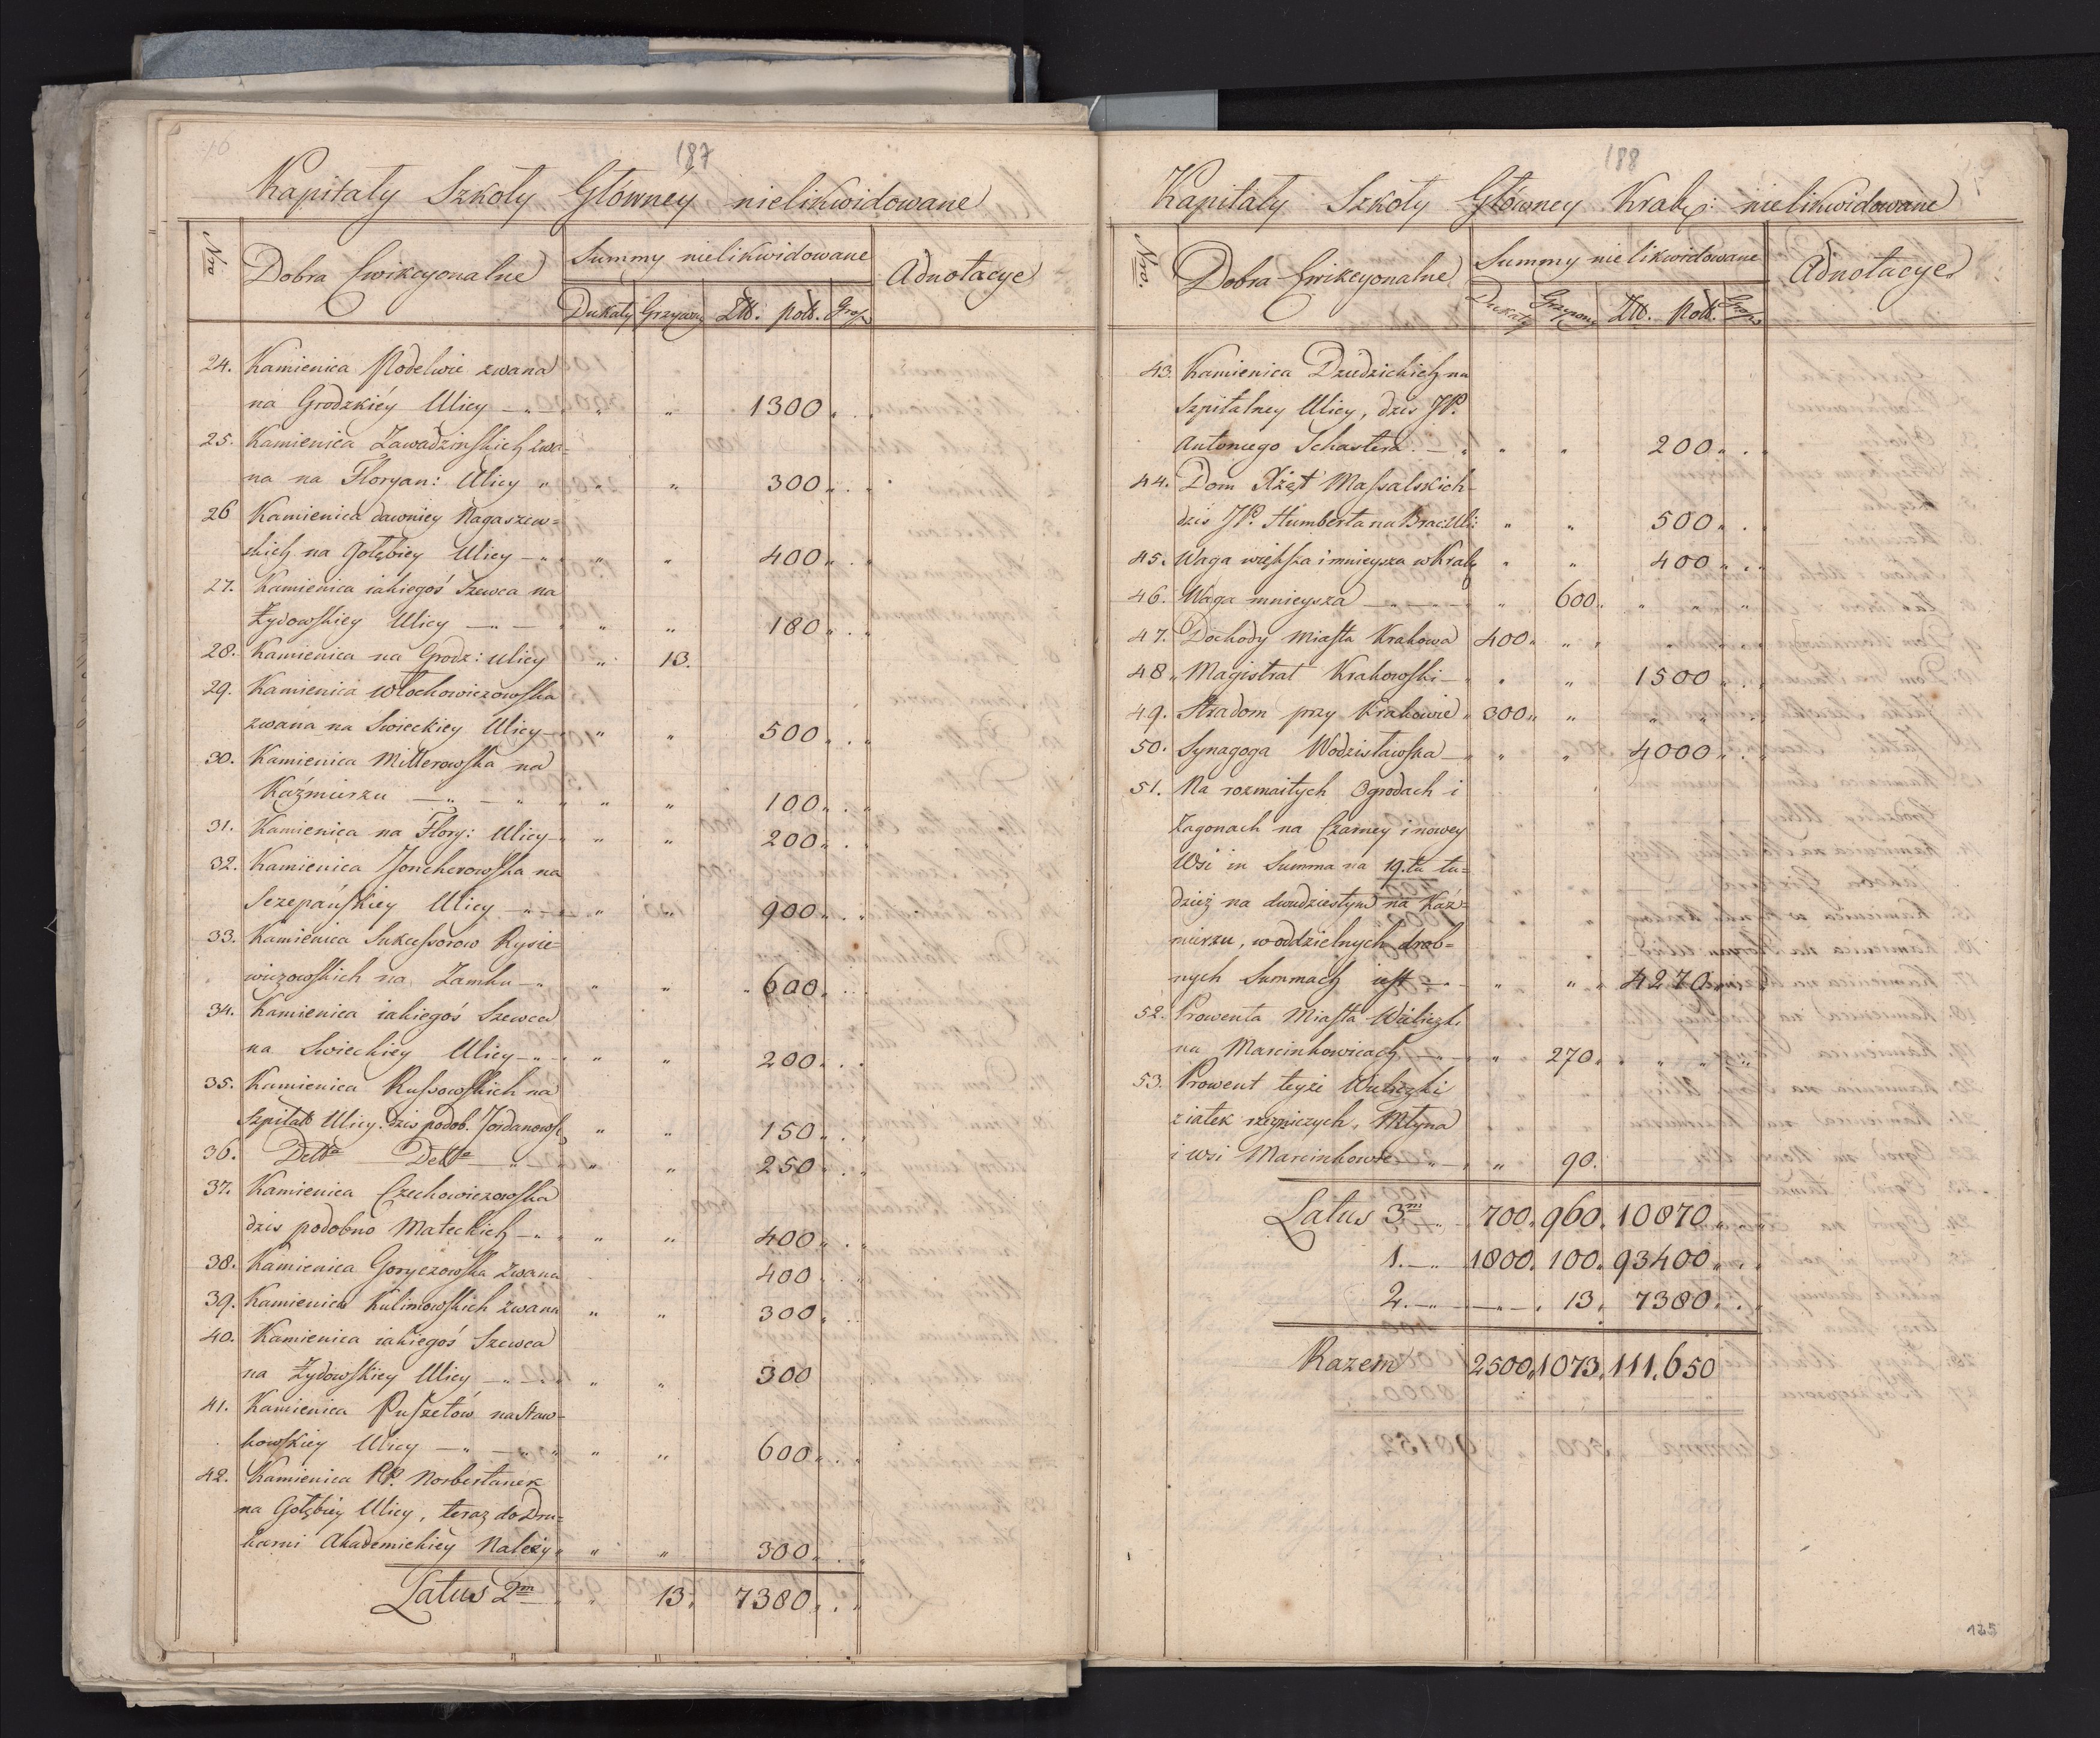 187
Kapitały Szkoły Główney nielikwidowane
Nro
Dobra Ewikcyonalne
Summy nielikwidowane
Adnotacye
Dukaty Grzywny Złł. poll. Grosz
24. Kamienica Podelwie zwana
na Grodzkiéy Ulicy — „ „ 1300 „
25. Kamienica Zawadzinskich zwa=
na na Floryan: Ulicy „ „ „ 300 „
26 Kamienica dawniey Ragaszew=
skich na Gołębiey Ulicy — „ „ 400 „
27. Kamienica iakiegoś Szewca na
Żydowskiey Ulicy — „ — „ „ 180 „
28. Kamienica na Grodz: ulicy „ 13.
29. Kamienica Włochowiczowska
zwana na Swieckiey Ulicy — „ „ 500 „
30. Kamienica Millerowska na
Kaźmierzu — „ — „ „ „ 100 „
31. Kamienica na Flory: Ulicy — „ „ 200 „
32. Kamienica Joncherowska na
Szczepańskiey Ulicy — „ — „ „ 900 „
33. Kamienica Sukcessorow Rysie=
wiczowskich na Zamku — „ „ 600 „
34. Kamienica iakiegoś Szewca
na Swieckiey Ulicy — „ „ „ 200 „
35. Kamienica Russowskich na
Szpitall Ulicy. dzis podob. Jordanowsk „ „ 150 „
36. Detto Detto — „ — „ „ 250 „
37. Kamienica Czechowiczowska
dzis podobno Mateckich — „ „ „ 400 „
38. Kamienica Goryczowska zwana 400 „
39. Kamienica Kulinowskich zwana „ „ 300 „
40. Kamienica iakiegoś Szewca
na Żydowskiey Ulicy — „ — „ „ 300
41. Kamienica Puszetów na Staw=
kowskiey Ulicy — „ — „ „ „ 600 „
42. Kamienica PP. Norbertanek
na Gołębiey Ulicy, teraz do Dru=
karni Akademickiey Należy „ „ „ 300 „
Latus 2m „ „ 13. 7380 „
188
Kapitały Szkoły Główney Krak: nielikwidowane
Nro.
Dobra Ewikcyonalne
Summy nielikwidowane
Adnotacye
Dukaty Grzywny Złł. Poll. Grosze
43. Kamienica Dziedzickich na
Szpitalney Ulicy, dzis JP.
Antoniego Schastera. — „ „ „ 200 „
44. Dom Xżąt Massalskich
dzis JP. Humberta na Brac: Uli: „ „ 500 „
45. Waga większa i mnieysza w Krak „ „ 400 „
46. Waga mnieysza — „ — „ — „ 600 „ „ „ „
47. Dochody Miasta Krakowa 400 „ „ „
48 „ Magistrat Krakowski — „ „ 1500 „
49. Stradom przy Krakowie „ 300 „ „ „ „ „
50. Synagoga Wodzisławska — „ „ 4000 „
51. Na rozmaitych Ogrodach i
Zagonach na Czarney i nowey
Wsi in Summa na 19.tu tu=
dzież na dwudziestym na Kaź=
mierzu, w oddzielnych drob=
nych Summach iest — „ „ „ 4270 „
52. Prowenta Miasta Wieliczki
na Marcinkowicach — „ „ 270 „ „ „ „
53. Prowent teyże Wieliczki
z iatek rzeźniczych, Młyna
i wsi Marcinkowic — „ — „ 90.
Latus 3m „ 700. 960. 10870 „
1. — „ 1800. 100. 93400 „
2. — „ — „ — „ 13. 7380 „
Razem 2500. 1073. 111,650
125